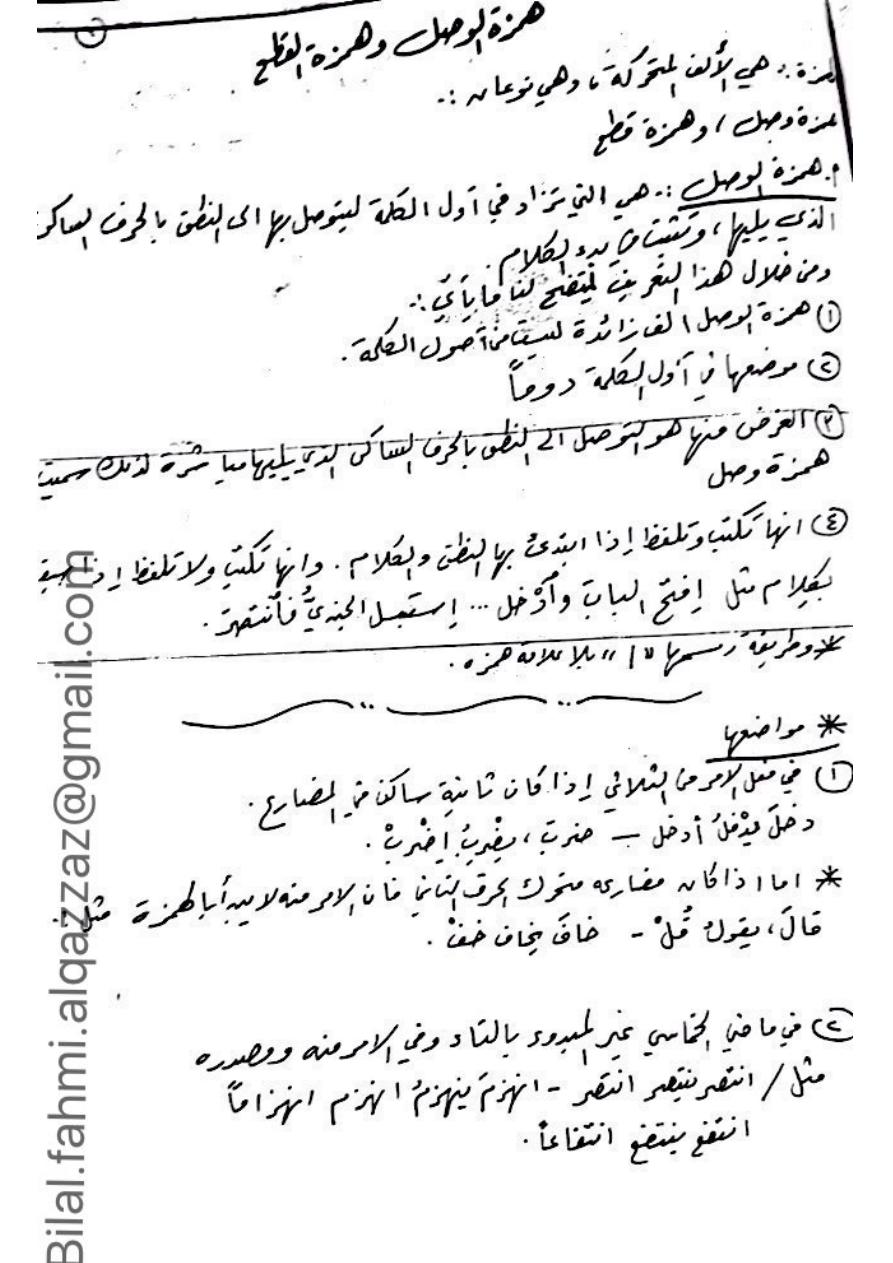 همزة الوصل وهمزة القطع
همزة :. هي الألف المتحركة ، وهي نوعان :.
همزة وصل ، وهمزة قطع
همزة الوصل :. هي التي تزاد في أول الكلمة ليتوصل بها الى النطق بالحرف الساكن
الذي يليها ، وتثبت في بدء الكلام .
ومن خلال هذا التعريف يتضح لنا ما يأتي :.
① همزة الوصل الف زائدة ليست من أصول الكلمة .
② موضعها في أول الكلمة دوماً
③ الغرض منها هو التوصل الى النطق بالحرف الساكن الذي يليها مباشرة لذلك سميت
همزة وصل
④ انها تكتب وتلفظ إذا ابتدئ بها النطق والكلام . وانها تكتب ولا تلفظ إذا سبقت
بكلام مثل إفتح الباب وأدخل ... إستبسل الجنديُّ فأنتصرَ .
* وطريقة رسمها "ا" بلا علامة همزه .
* مواضعها
① في فعل الامر من الثلاثي إذا كان ثانية ساكن في المضارع .
دخلَ يدْخلُ أدخل – ضربَ ، يضْرِبُ إضْربْ .
* اما اذا كان مضارعه متحرك الحرف الثاني فان الامر منه لا يبدأ بالهمزة مثل :
قالَ ، يقولُ قُلْ - خافَ يخاف خفْ .
② في ماضي الخماسي غير المبدوء بالتاء وفي الامر منه ومصدره
مثل / انتصر ينتصر انتصر - انهزمَ ينهزمُ انهزم انهزاماً
انتفع ينتفع انتفاعاً .
Bilal.fahmi.alqazzaz@gmail.com